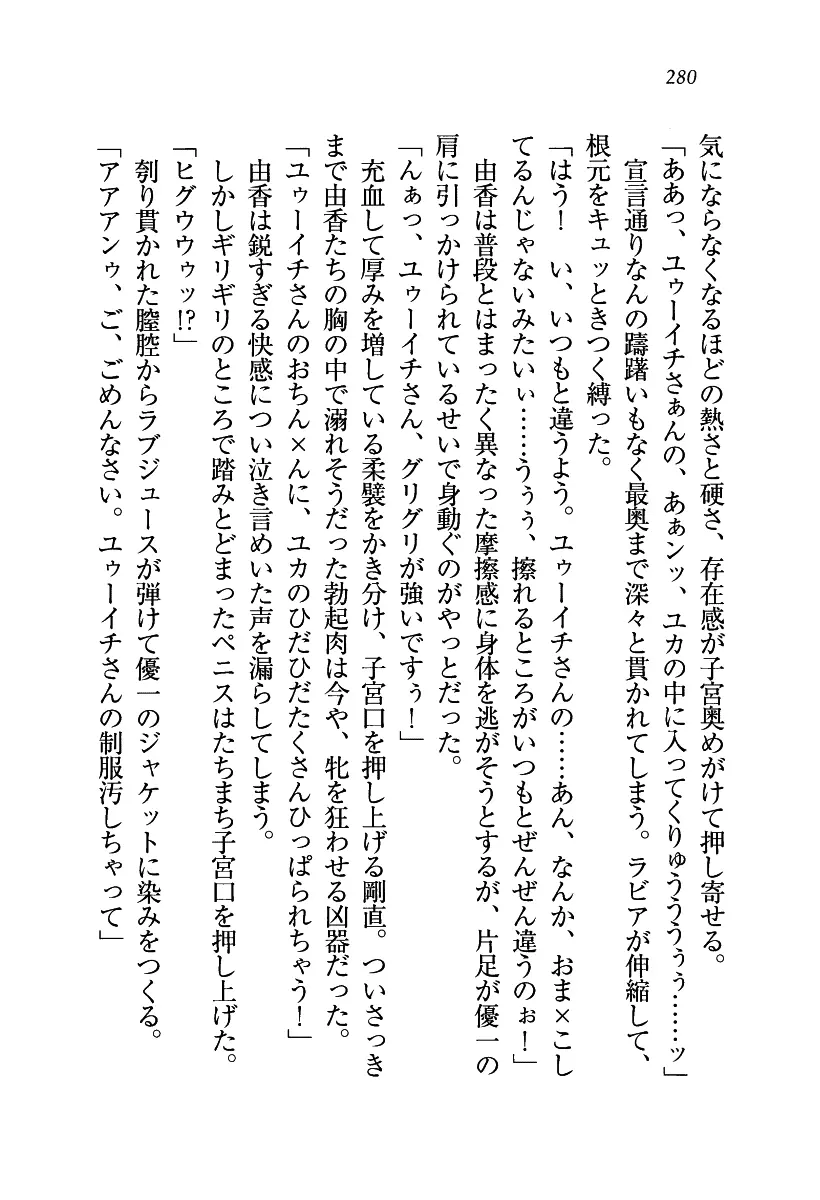 280
気にならなくなるほどの熱さと硬さ、存在感が子宮奥めがけて押し寄せる。
「ああっ、ユゥーイチさぁんの、あぁンッ、ユカの中に入ってくりゅうううぅぅ……ッ」
宣言通りなんの躊躇いもなく最奥まで深々と貫かれてしまう。ラビアが伸縮して、
根元をキュッときつく縛った。
「はう！　い、いつもと違うよう。ユゥーイチさんの……あん、なんか、おま×こし
てるんじゃないみたいぃ……うぅぅ、擦れるところがいつもとぜんぜん違うのぉ！」
由香は普段とはまったく異なった摩擦感に身体を逃がそうとするが、片足が優一の
肩に引っかけられているせいで身動ぐのがやっとだった。
「んぁっ、ユゥーイチさん、グリグリが強いですぅ！」
充血して厚みを増している柔襞をかき分け、子宮口を押し上げる剛直。ついさっき
まで由香たちの胸の中で溺れそうだった勃起肉は今や、牝を狂わせる凶器だった。
「ユゥーイチさんのおちん×んに、ユカのひだひだたくさんひっぱられちゃう！」
由香は鋭すぎる快感につい泣き言めいた声を漏らしてしまう。
しかしギリギリのところで踏みとどまったペニスはたちまち子宮口を押し上げた。
「ヒグウウゥッ!?」
刳り貫かれた膣腔からラブジュースが弾けて優一のジャケットに染みをつくる。
「アアアンゥ、ご、ごめんなさい。ユゥーイチさんの制服汚しちゃって」